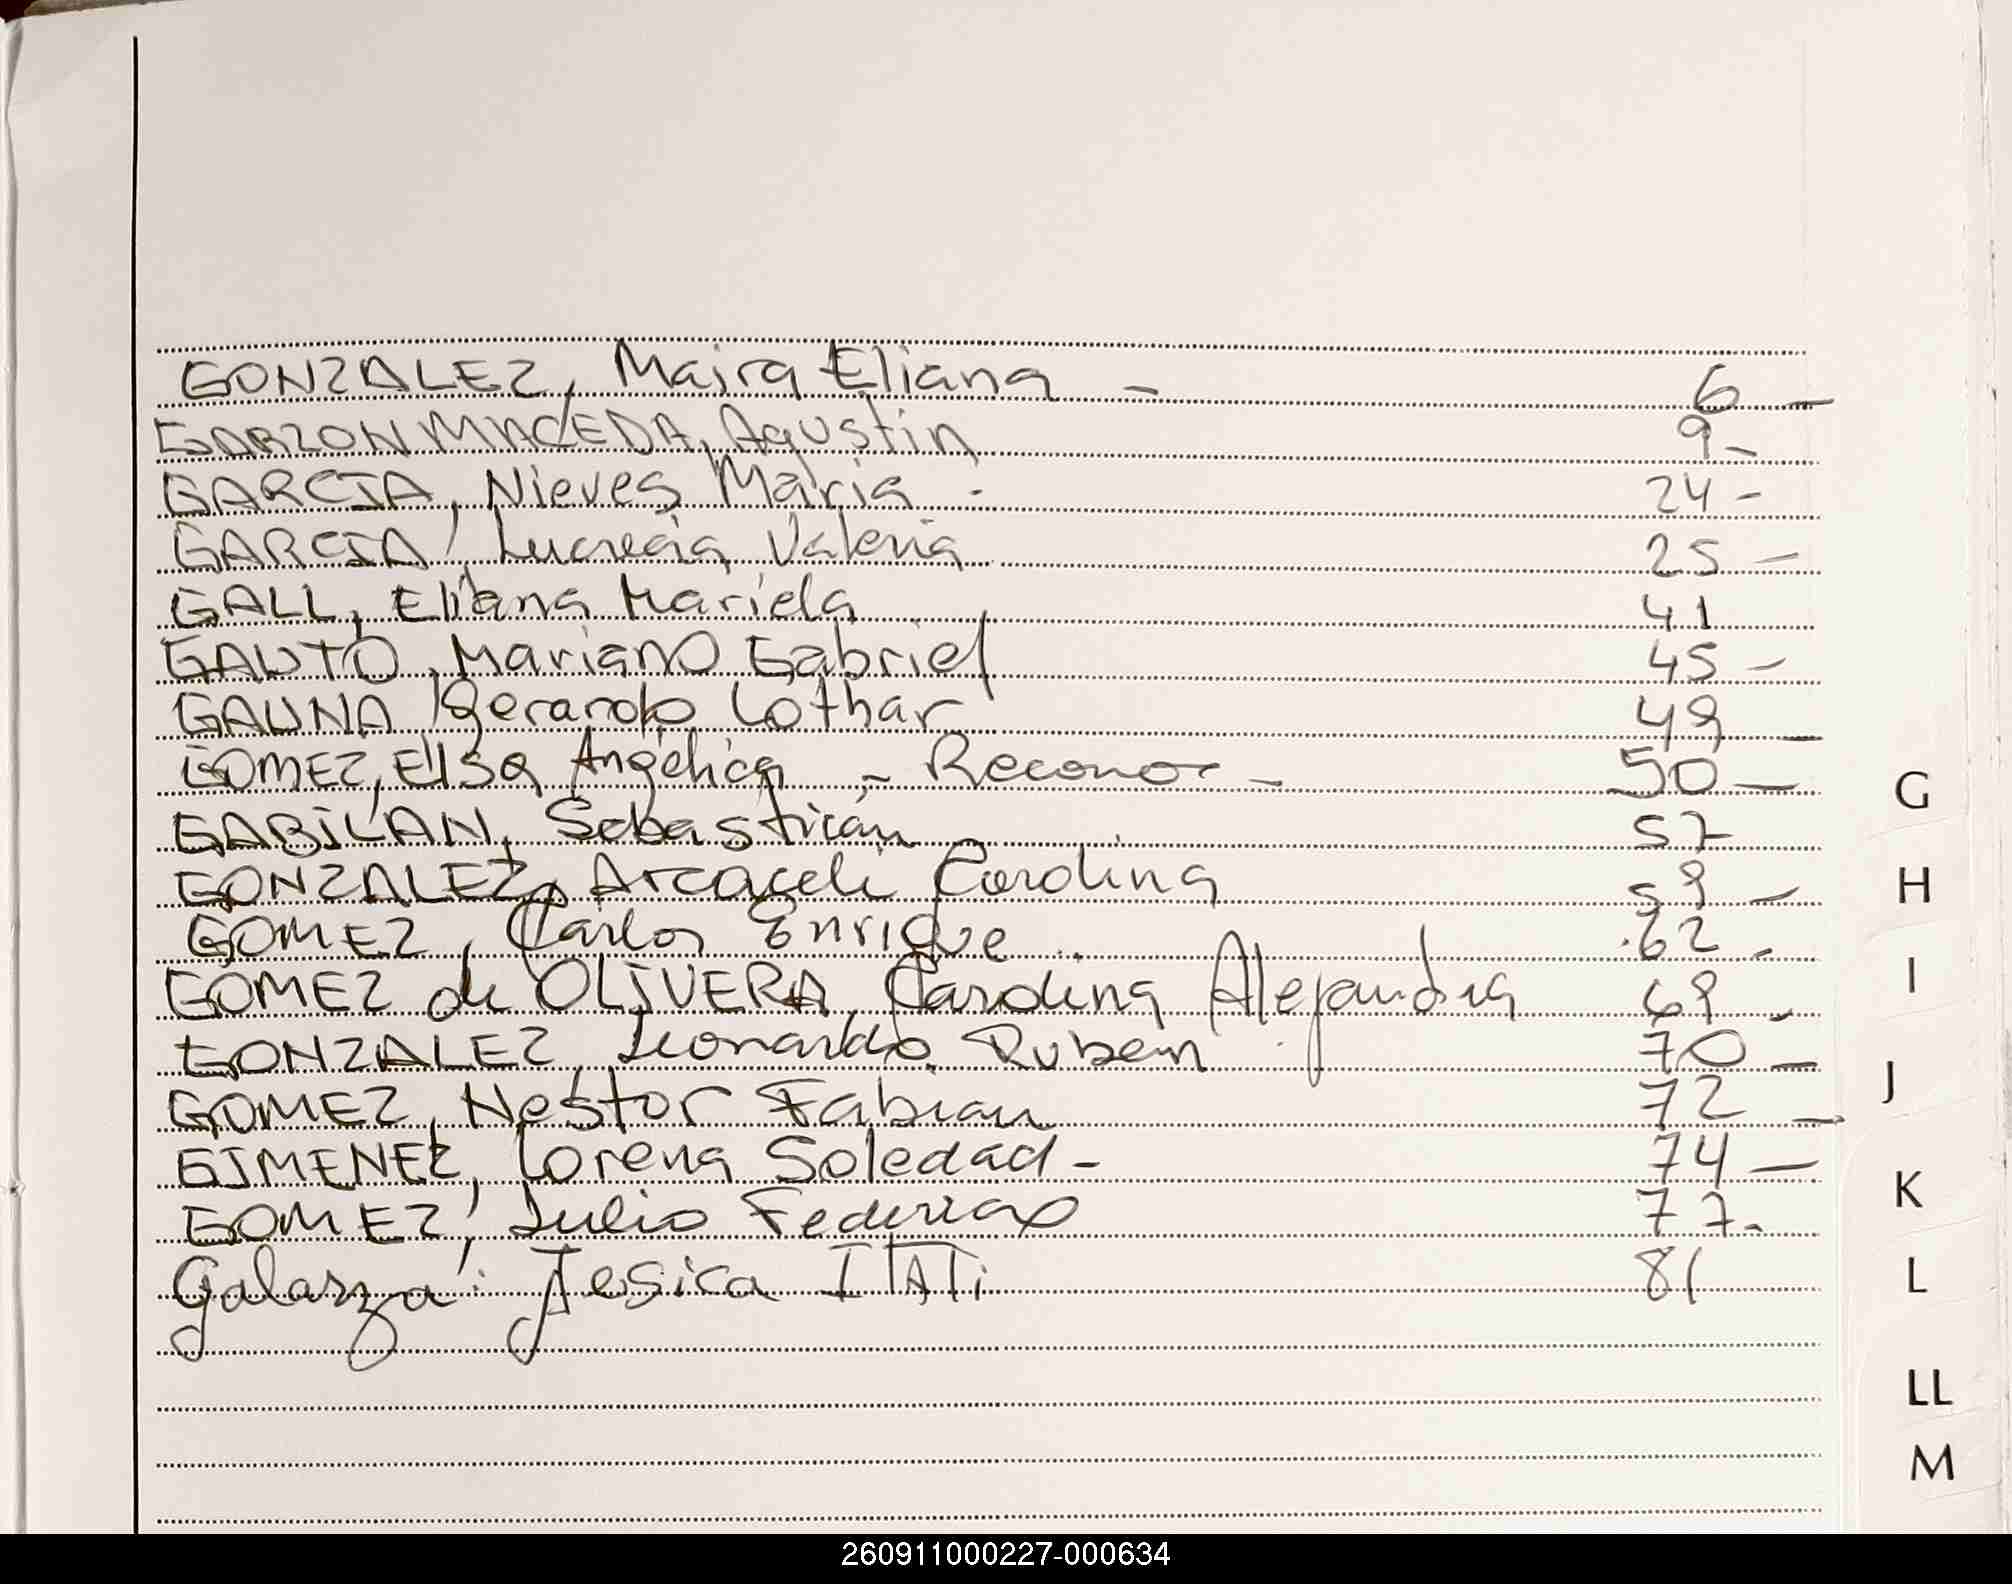 GONZALEZ, Maira Eliana - 6 -
GARZON MACEDA, Agustin 9 -
GARCIA, Nieves Maria - 24 -
GARCIA, Lucrecia Valeria 25 -
GALL, Eliana Mariela 41
GAUTO, Mariano Gabriel 45 -
GAUNA, Gerardo Lothar 49 -
GOMEZ, Elsa Angélica - Reconoc - 50 -
GABILAN, Sebastián 57
GONZALEZ, Arcaceli Carolina 59 -
GOMEZ, Carlos Enrique 62 -
GOMEZ de OLIVERA, Carolina Alejandra 69 -
GONZALEZ, Leonardo Ruben 70 -
GOMEZ, Nestor Fabian 72 -
GIMENEZ, Lorena Soledad - 74 -
GOMEZ, Julio Federico 77 -
Galarza: Jesica ITATi 81
G
H
I
J
K
L
LL
M
260911000227-000634